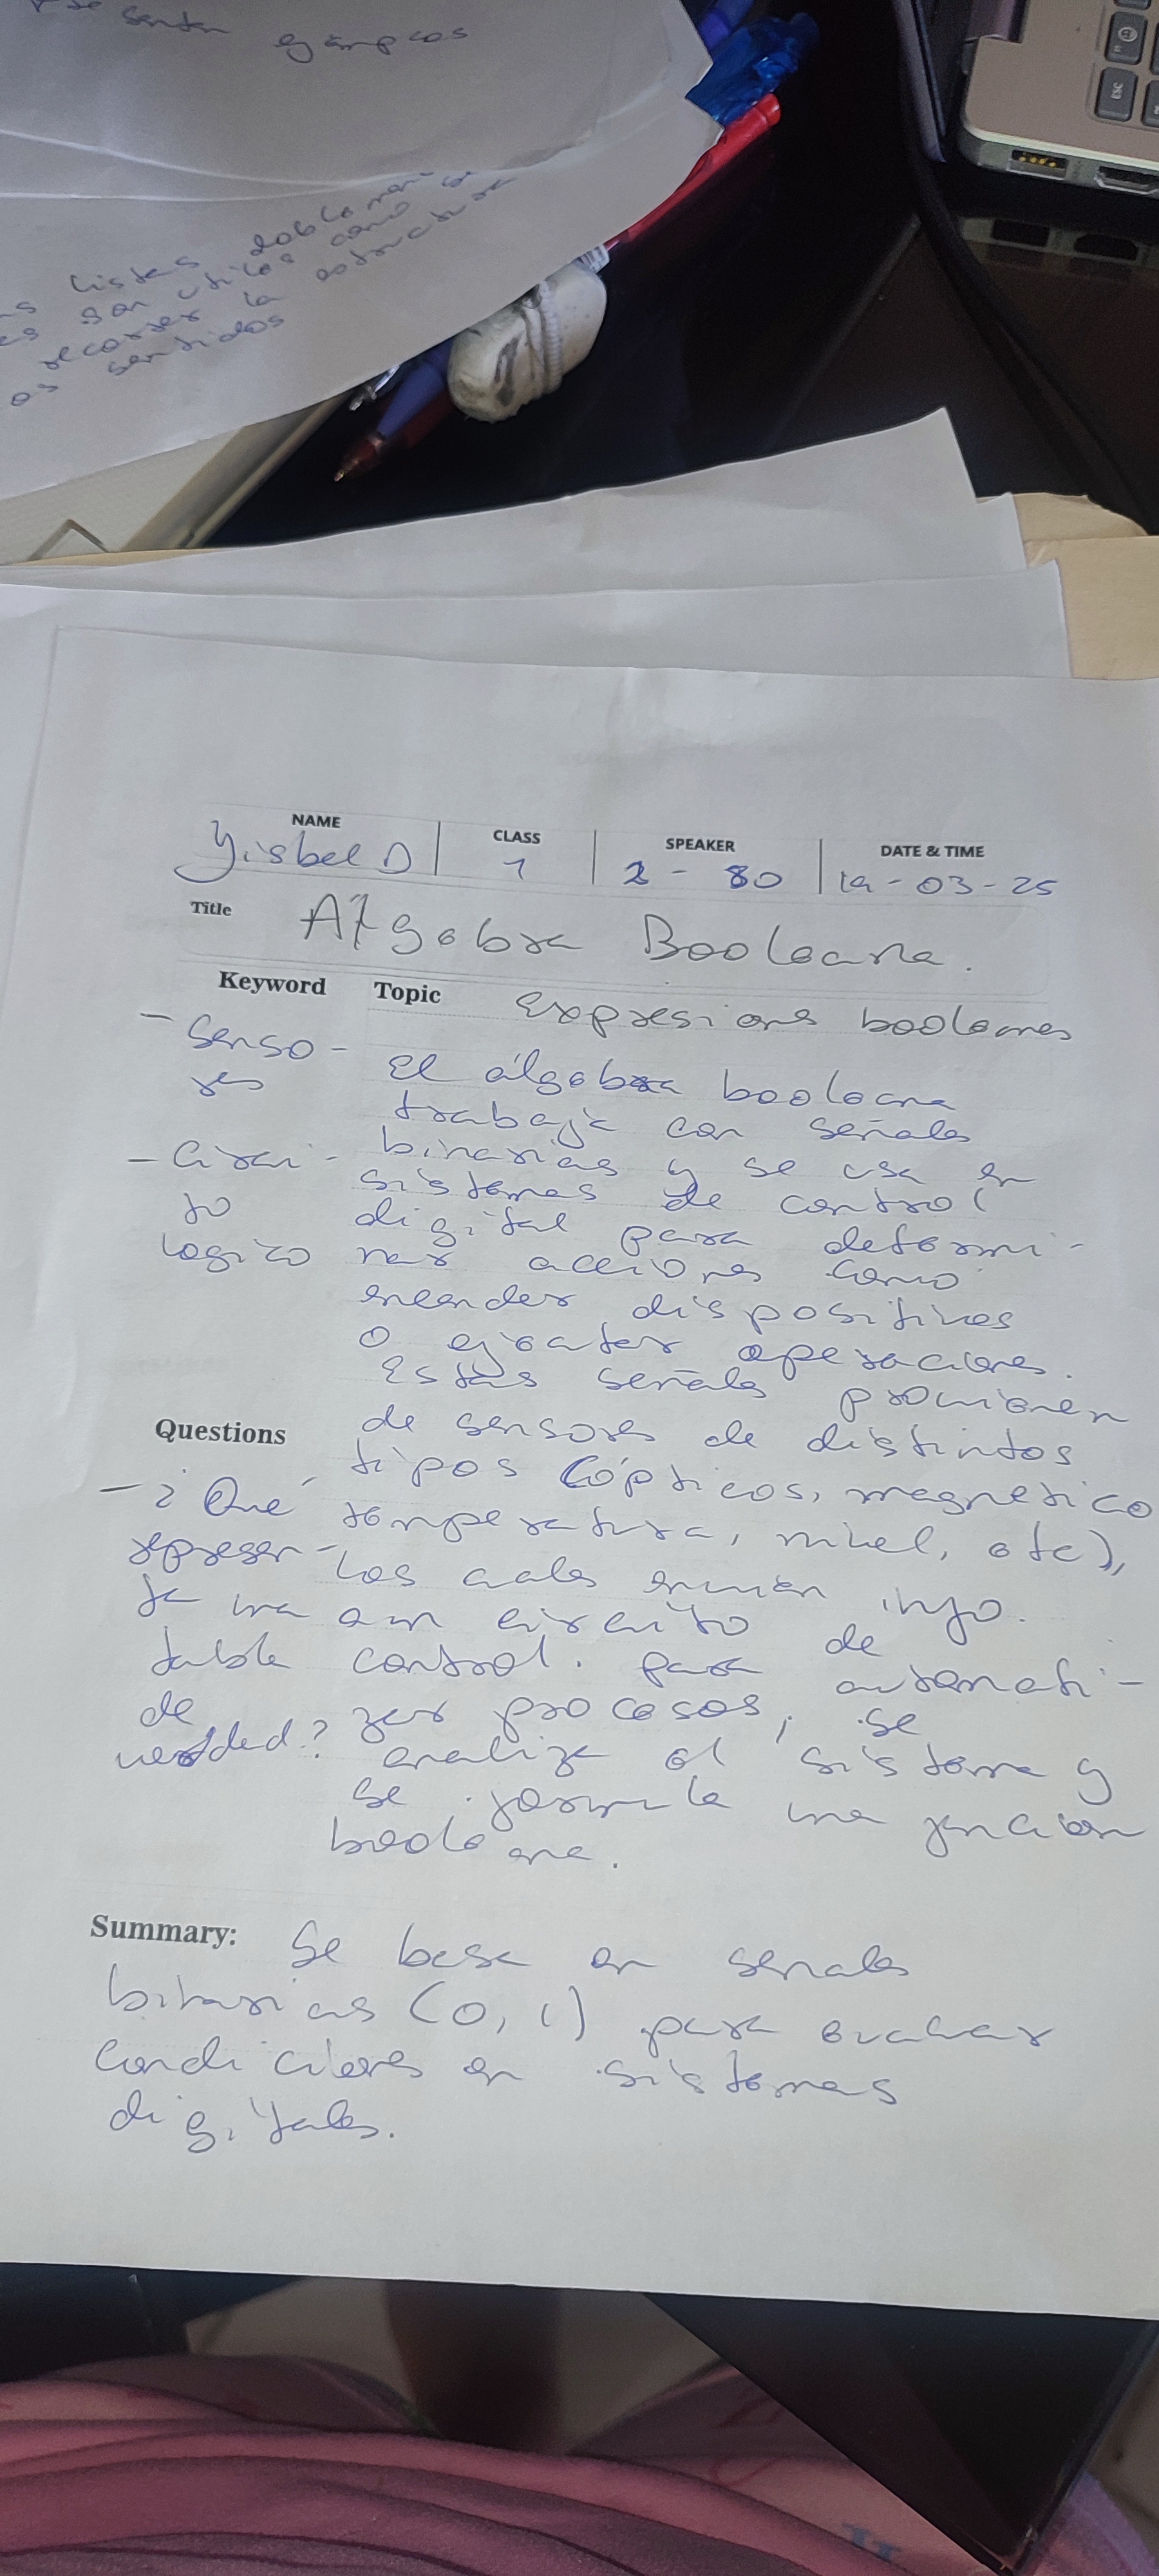 se senten ejemplos
listas doblemen
es son utiles como se
recorrer la estructura
os sentidos
ESC
NAME CLASS SPEAKER DATE & TIME
Yisbel D 1 2 - 80 19-03-25
Title Álgebra Booleana.
Keyword Topic Expresions booleanas
- Senso-
res
- Circui-
to
logico
El álgebra booleana
trabaja con señales
binarias y se usa en
sistemas de control
digital para determi-
nar acciones como
encender dispositivos
o ejecutar operaciones.
Estas señales provienen
de sensores de distintos
tipos (ópticos, magnetico
temperatura, nivel, etc),
los cuales envian info.
a un circuito de
control. para automati-
zar procesos, se
analiza el sistema y
se formula una funcion
booleana.
Questions
- ¿Qué
represen-
ta una
tabla
de
verdded?
Summary: Se basa en senales
binarias (0,1) para evaluar
condiciones en sistemas
digitales.